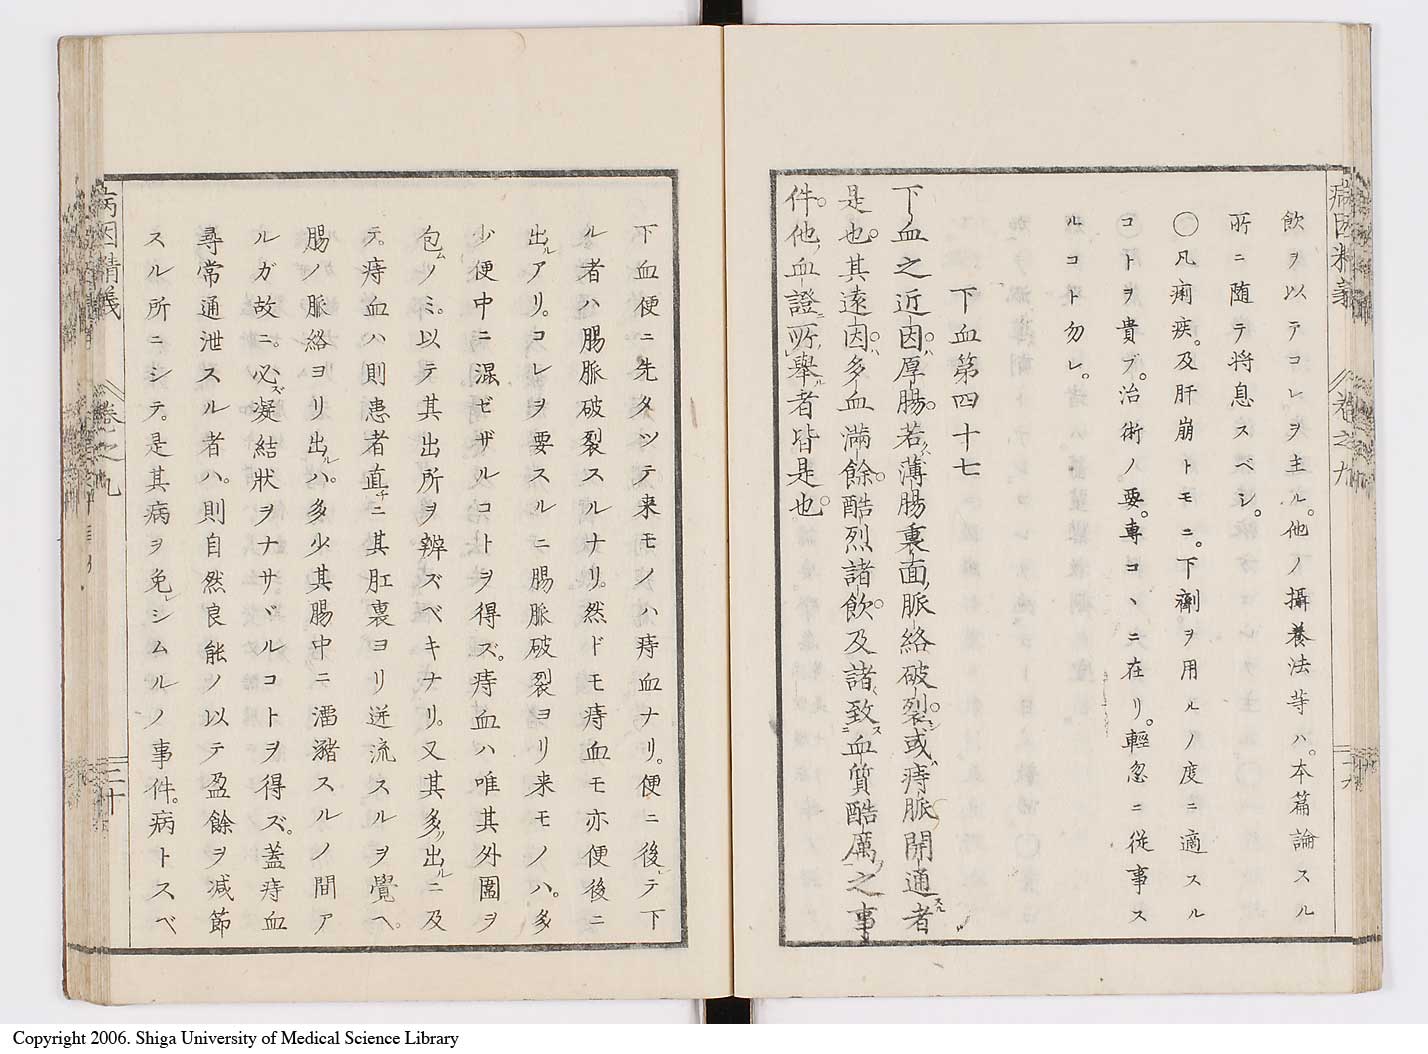 病因精義
卷之九
飲ヲ以テコレヲ主ル。他ノ攝養法等ハ。本篇論スル
所ニ随テ将息スベシ。
〇凡痢疾。及肝崩トモニ。下劑ヲ用ルノ度ニ適スル
コトヲ貴ブ。治術ノ要。専コヽニ在リ。輕忽ニ従事ス
ルコト勿レ。
下血第四十七
下血之近因ハ厚腸。若クハ薄腸裏面ノ脈絡破裂シ。或ハ痔脈開通スル者
是也。其遠因ハ。多血滿餘。酷烈諸飲。及諸致ス血質酷厲ニ之事
件。他ノ血證ニ所ノ擧ル者皆是也。
下血便ニ先タツテ来モノハ痔血ナリ。便ニ後レテ下
ル者ハ腸脈破裂スルナリ。然ドモ痔血モ亦便後ニ
出ルアリ。コレヲ要スルニ腸脈破裂ヨリ来モノハ。多
少便中ニ混ゼザルコトヲ得ズ。痔血ハ唯其外圍ヲ
包ムノミ。以テ其出所ヲ辨ズベキナリ。又其多ク出ルニ及
テ。痔血ハ則患者直チニ其肛裏ヨリ迸流スルヲ覺ヘ。
腸ノ脈絡ヨリ出ルハ。多少其腸中ニ濡瀦スルノ間ア
ルガ故ニ。必ズ凝結状ヲナサヾルコトヲ得ズ。蓋痔血
尋常通泄スル者ハ。則自然良能ノ以テ盈餘ヲ減節
スル所ニシテ。是其病ヲ免レシムルノ事件。病トスベ
病因精義
卷之九
三十
Copyright 2006. Shiga University of Medical Science Library